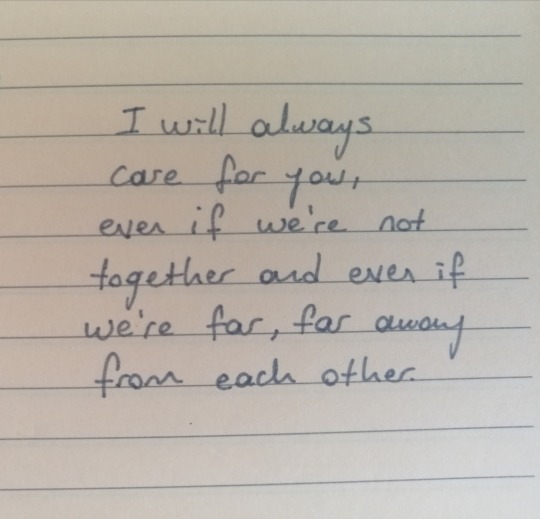 I will always
care for you,
even if we're not
together and even if
we're far, far away
from each other.